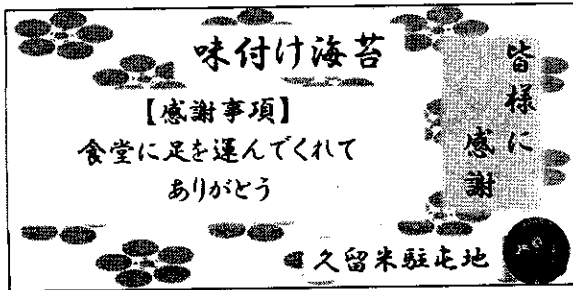 味付け海苔
【感謝事項】
食堂に足を運んでくれて
ありがとう
皆様に
感謝
久留米駐屯地